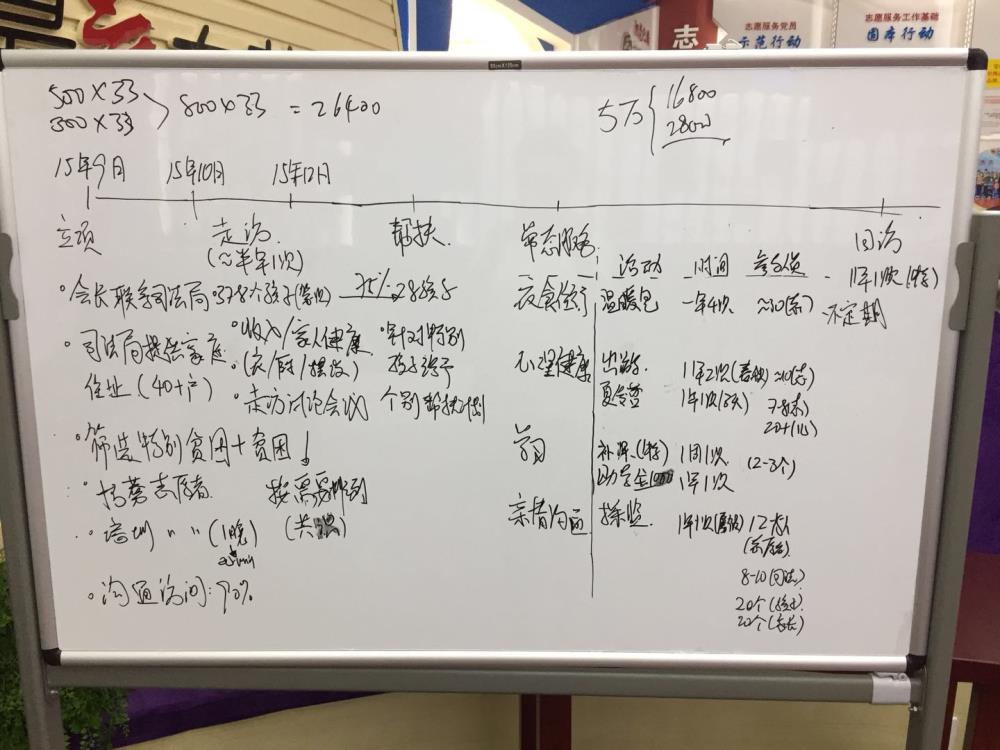 志
志愿服务党员
示范行动
志愿服务工作基础
固本行动
500×33
300×33
800×33 = 26400
5万
16800
2800
15年9月 15年10月 15年12月
立项 走访 帮扶 常态服务 回访
(~半年1次)
活动 时间 参与人员
1年1次(特)
不定期
·会长联系司法局
·司法局提供家庭
住址(40+户)
·筛选特别贫困+贫困!
·招募志愿者
·培训 〃 〃 (1晚)
·沟通访问:90%
·37-8个孩子
·收入/家人健康
·(衣/厨/摆设)
·走访讨论会议
按需要排列
28孩子
·针对特别
孩子给予
个别帮扶计划
衣食住行 温暖包 一年4次 ~10(志)
心理健康 出游 1年2次(春秋) ~10(志)
夏令营 1年1次 7-8(志)
20+(儿)
学习 补课(特) 1周1次 (2-3个)
助学金1000 1年1次
亲情沟通 探监 1年1次 12
8-10(司法)
20个(孩子)
20个(家长)